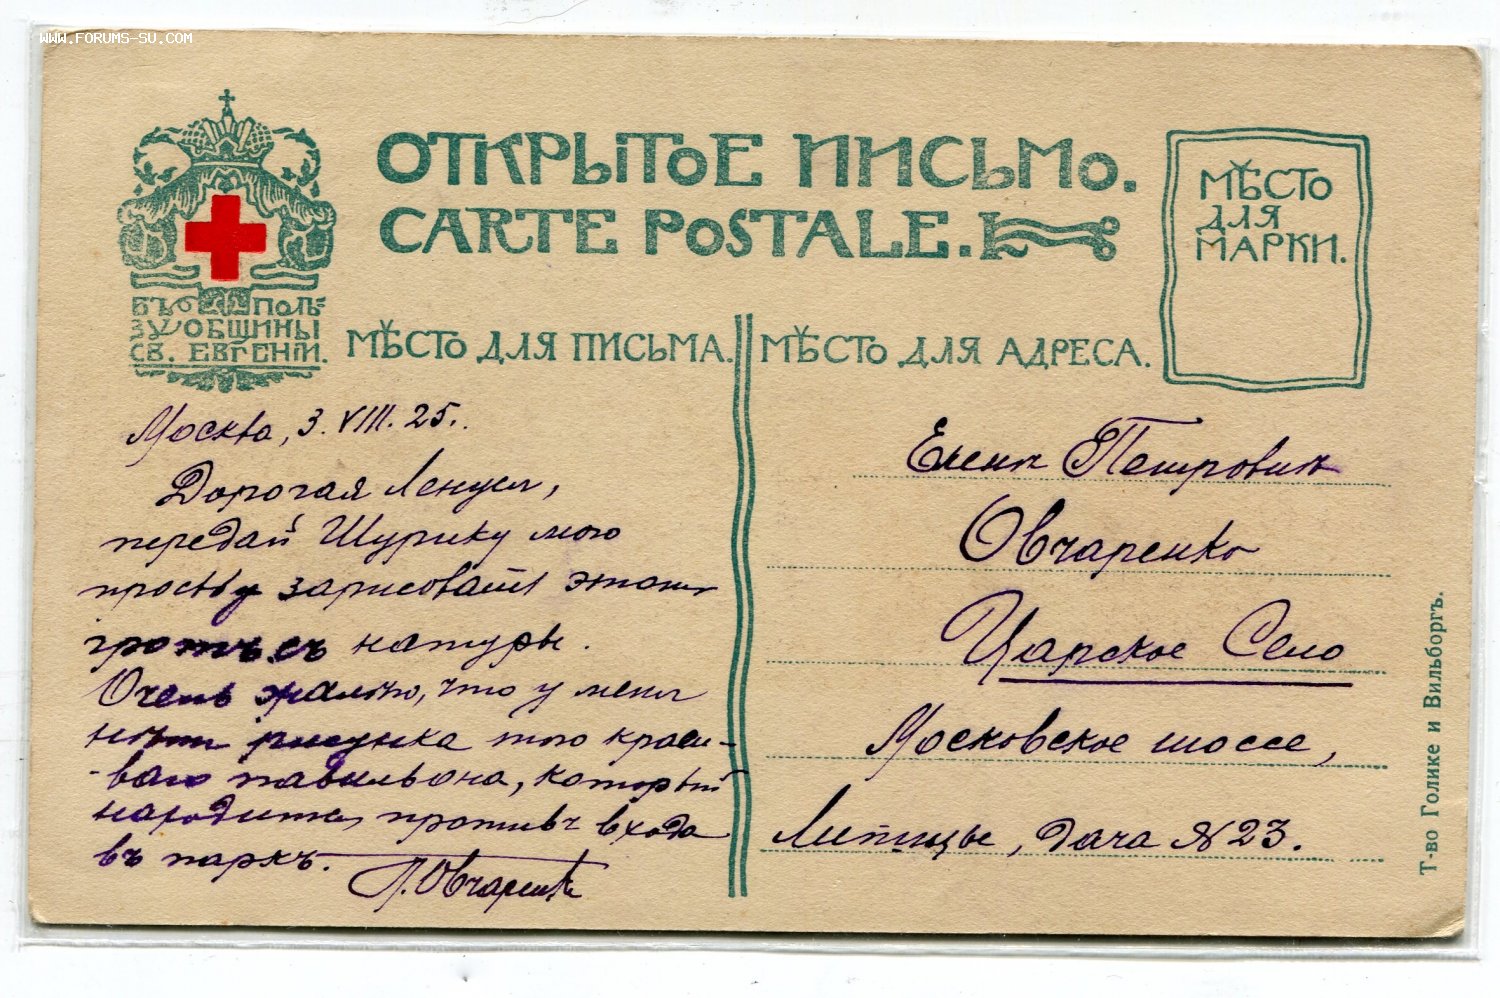 WWW.FORUMS-SU.COM
ОТКРЫТОЕ ПИСЬМО.
CARTE POSTALE.
МѢСТО
ДЛЯ
МАРКИ.
ВЪ ПОЛЬ-
ЗУ ОБЩИНЫ
СВ. ЕВГЕНІИ.
МѢСТО ДЛЯ ПИСЬМА.
МѢСТО ДЛЯ АДРЕСА.
Москва, 3. VIII. 25.
Дорогая Ленуся,
передай Шурику мою
просьбу зарисовать этотъ
гротъ съ натуры.
Очень жалко, что у меня
нѣтъ рисунка того краси-
-ваго павильона, который
находится противъ входа
въ паркъ.
Л. Овчаренко
Елене Петровне
Овчаренко
Царское Село
Московское шоссе,
Липицы, дача N 23.
Т-во Голике и Вильборгъ.